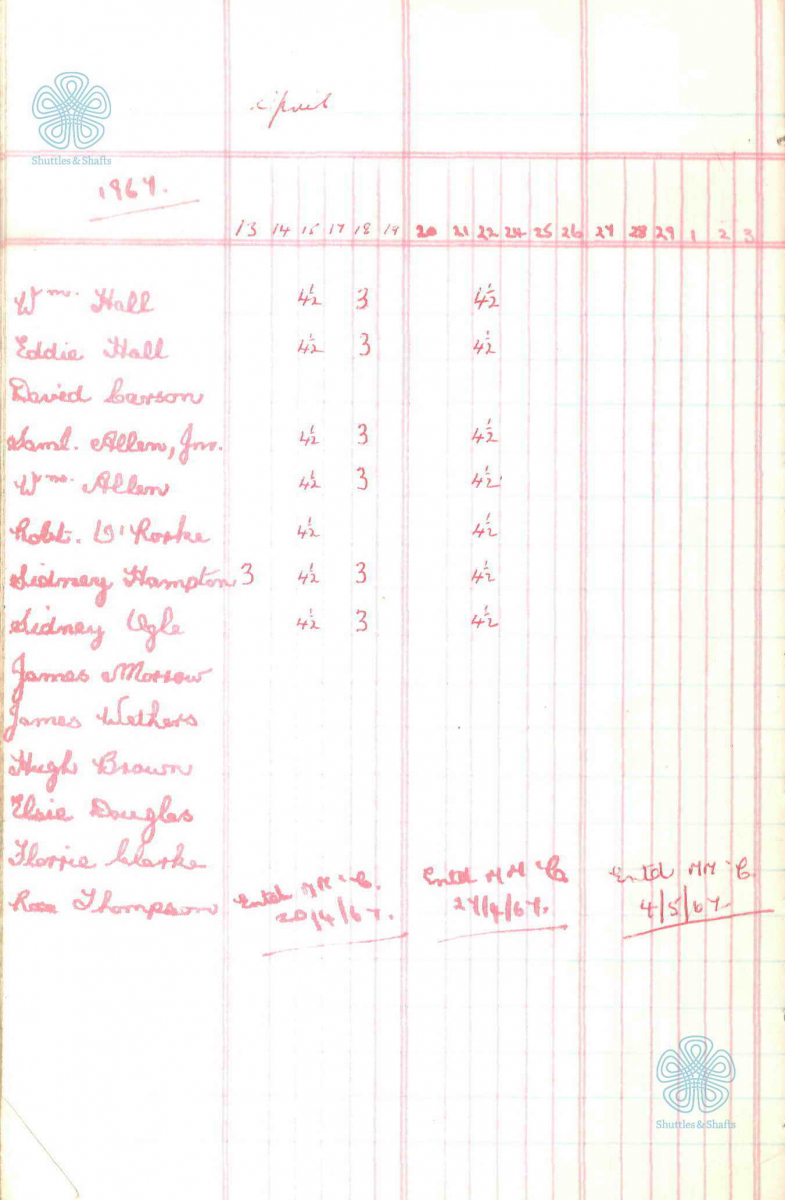 April
Shuttles & Shafts
1967.
13 14 15 17 18 19 20 21 22 24 25 26 27 28 29 1 2 3
Wm. Hall 4½ 3 4½
Eddie Hall 4½ 3 4½
David Carson
Saml. Allen, Jnr. 4½ 3 4½
Wm. Allen 4½ 3 4½
Robt. O'Rorke 4½ 4½
Sidney Hampton 3 4½ 3 4½
Sidney Ogle 4½ 3 4½
James Morrow
James Wethers
Hugh Brown
Elsie Douglas
Florrie Clarke
Thompson
Entd MMcC. 20/4/67.
Entd MMcC 27/4/67.
Entd MMcC. 4/5/67.
Shuttles & Shafts